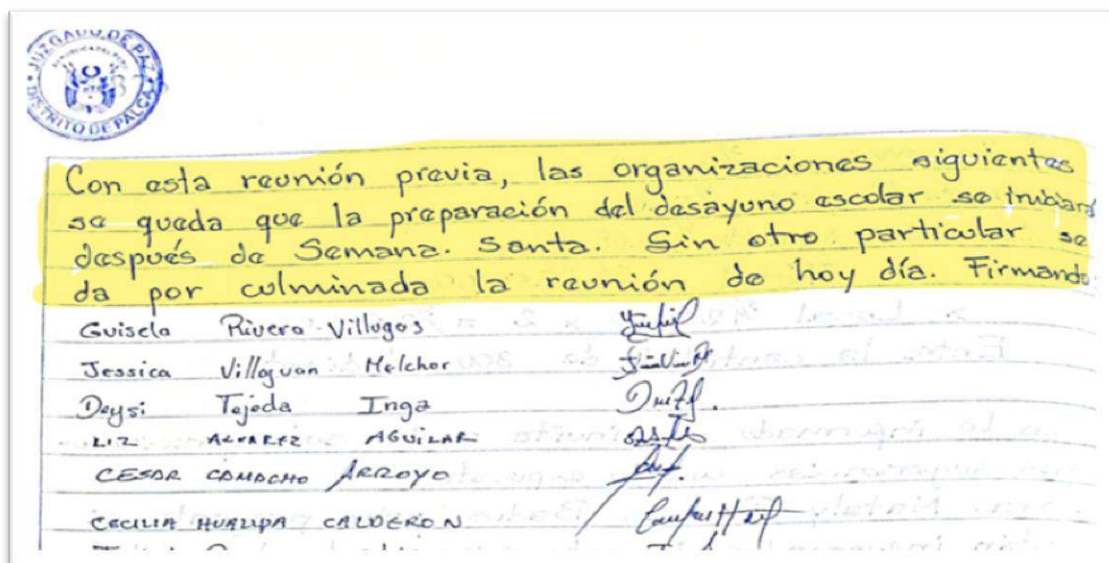 JUZGADO DE PAZ
DISTRITO DE PALCA
Con esta reunión previa, las organizaciones siguientes
se queda que la preparación del desayuno escolar se iniciará
después de Semana. Santa. Sin otro particular se
da por culminada la reunión de hoy día. Firmando
Guisela Rivera Villegas
Jessica Villaguan Melchor
Deysi Tejeda Inga
LIZ ALVAREZ AGUILAR
CESAR CAMACHO ARROYO
CECILIA HUALIPA CALDERON